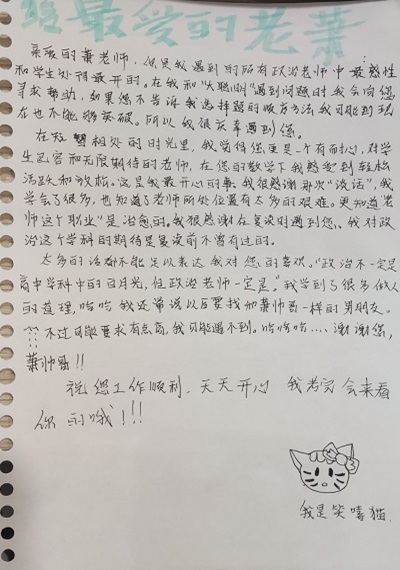 给最爱的老萧
亲爱的萧老师，你是我遇到的所有政治老师中最热性
和学生处得最开的。在我和"大聪明"遇到问题时我会向您
寻求帮助，如果您不告诉我选择题的做友方法，我可能到现
在也不能够突破。所以我很庆幸遇到您。
在相处的时光里，我觉得您更是一个有耐心，对学
生包容和无限期待的老师，在您的教学下我感受到轻松
活跃和放松。这是我最开心的事。我很感谢那次"谈话"，我
学会了很多，也知道了老师所处位置有太多的艰难。更知道"老
师这个职业"是治愈的。我很感谢在复读时遇到您、我对政
治这个学科的期待是复读前不曾有过的。
太多的话都不能足以表达我对您的喜欢。"政治不一定是
高中学科中的白月光，但政治老师一定是。"我学到了很多做人
的道理，哈哈我还常说以后要找和萧帅哥一样的男朋友。
不过可能要求有点高，我可能遇不到。哈哈哈....谢谢您，
萧帅哥!!
祝您工作顺利，天天开心 我考完会来看
你的哦!!!
我是笑嘻猫.